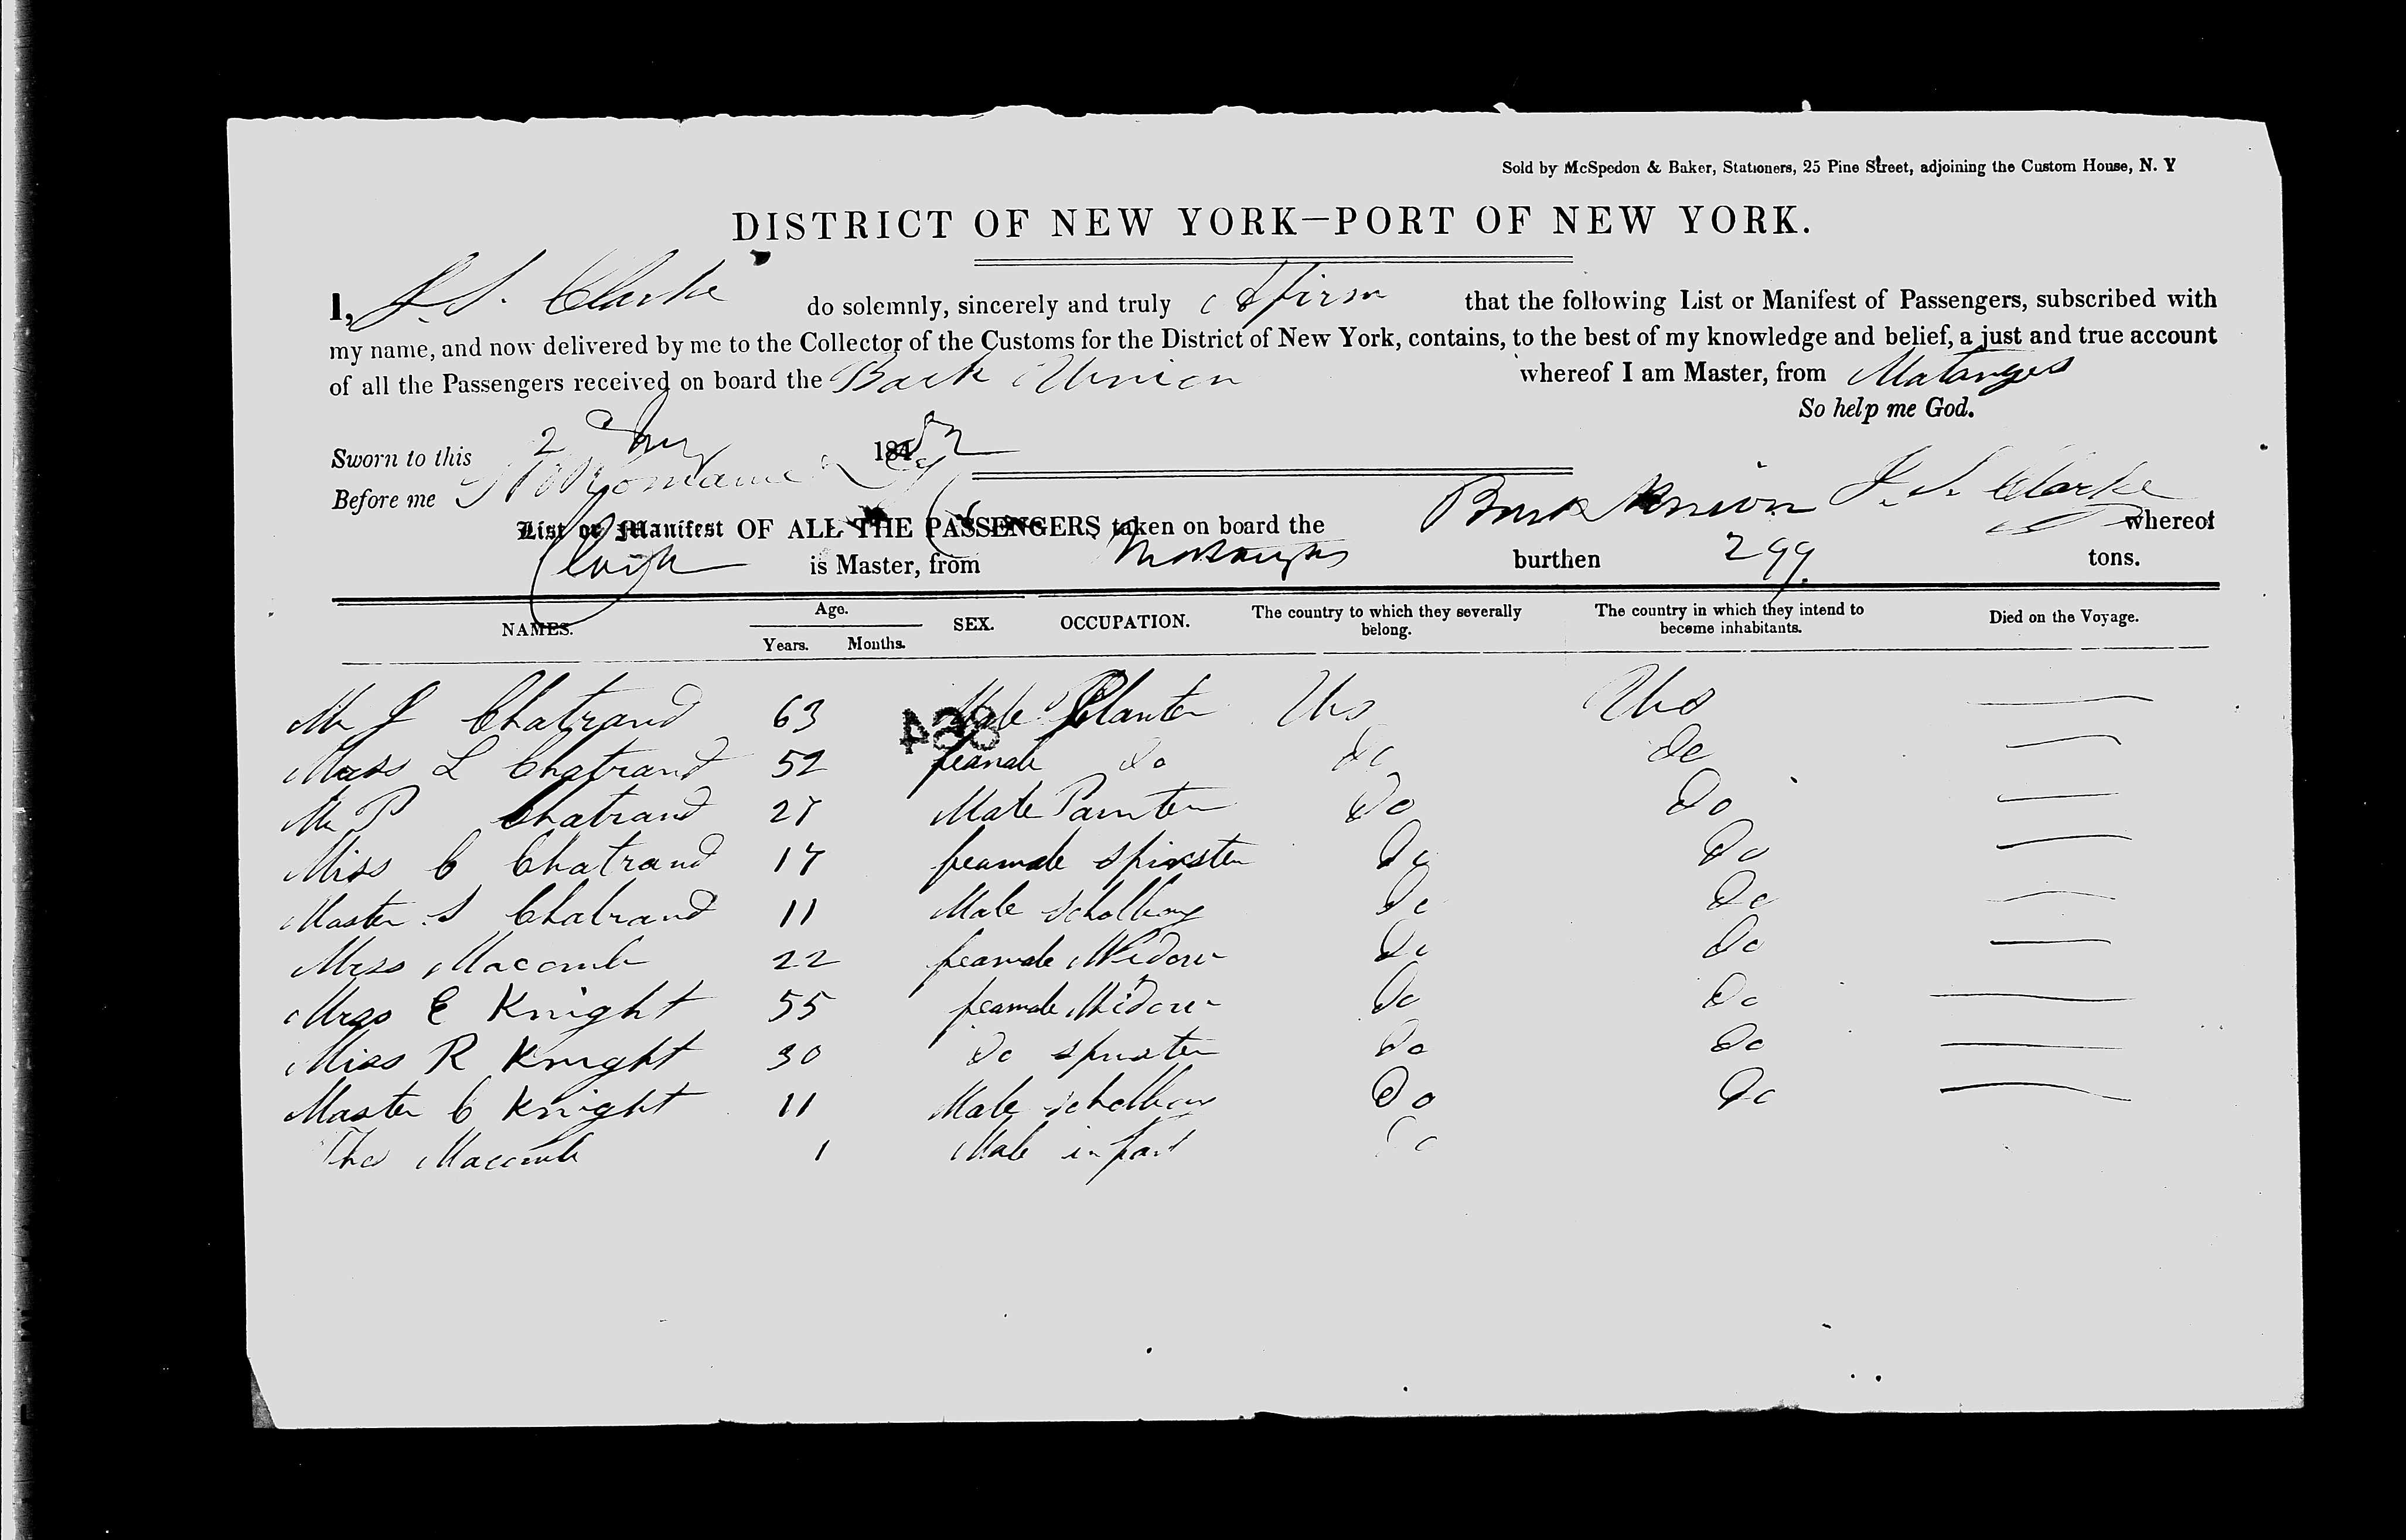 Sold by McSpedon & Baker, Stationers, 25 Pine Street, adjoining the Custom House, N. Y
DISTRICT OF NEW YORK—PORT OF NEW YORK.
I, J. S. Clarke do solemnly, sincerely and truly Affirm that the following List or Manifest of Passengers, subscribed with
my name, and now delivered by me to the Collector of the Customs for the District of New York, contains, to the best of my knowledge and belief, a just and true account
of all the Passengers received on board the Bark Union whereof I am Master, from Matanzas
So help me God.
Sworn to this 2 1852
Before me J. S. Clarke
List or Manifest OF ALL THE PASSENGERS taken on board the Bark Union whereof
is Master, from Matanzas burthen 299 tons.
NAMES. Age. Years. Months. SEX. OCCUPATION. The country to which they severally belong. The country in which they intend to become inhabitants. Died on the Voyage.
Mr J Chatrand 63 Male Planter U S U S
884
Mrss L Chatrand 52 feamale do do do
Mr P Chatrand 27 Male Painter Do Do
Miss C Chatrand 17 feamale spinster Do Do
Master S Chatrand 11 Male scholboy Do Do
Mrss Macomb 22 feamale Widow Do Do
Mrss E Knight 55 feamale Widow Do Do
Miss R Knight 30 Do spinster Do Do
Master C Knight 11 Male scholboy Do Do
Thos Macomb 1 Male infant Do